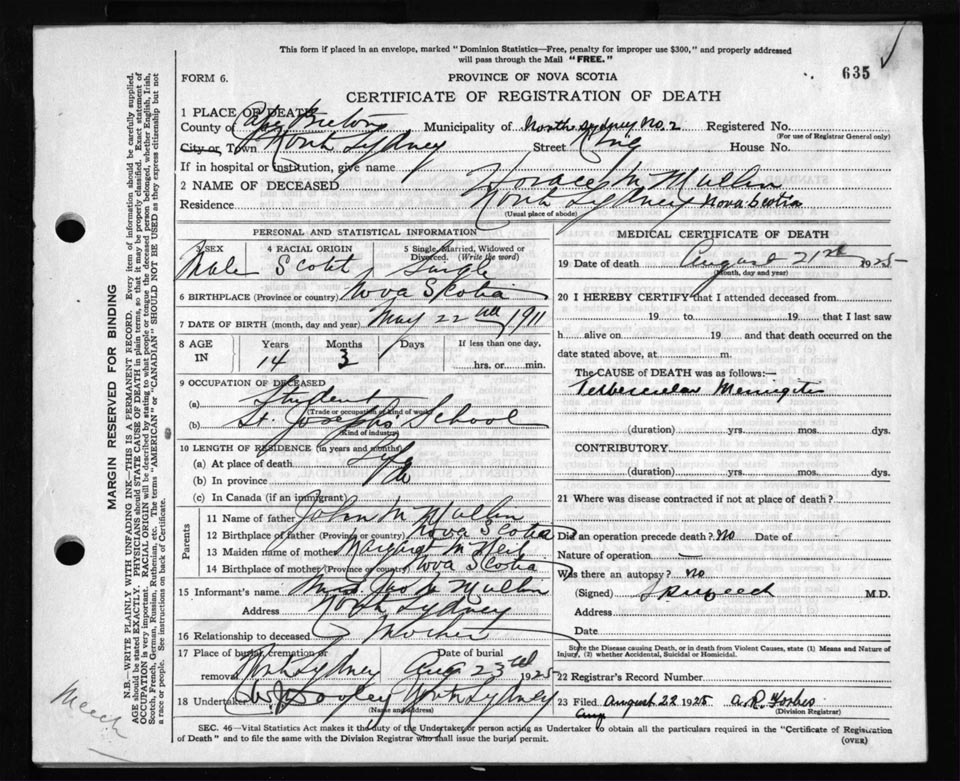 This form if placed in an envelope, marked "Dominion Statistics—Free, penalty for improper use $300," and properly addressed
will pass through the Mail "FREE."
FORM 6.
PROVINCE OF NOVA SCOTIA
635
CERTIFICATE OF REGISTRATION OF DEATH
1 PLACE OF DEATH
County of Cape Breton Municipality of North Sydney No. 2 Registered No.
(For use of Registrar General only)
City or Town North Sydney Street King House No.
If in hospital or institution, give name
2 NAME OF DECEASED Horace McMullin
Residence North Sydney Nova Scotia
(Usual place of abode)
PERSONAL AND STATISTICAL INFORMATION
3 SEX 4 RACIAL ORIGIN 5 Single, Married, Widowed or
Divorced. (Write the word)
Male Scotch Single
6 BIRTHPLACE (Province or country) Nova Scotia
7 DATE OF BIRTH (month, day and year) May 22nd 1911
8 AGE IN Years Months Days If less than one day,
14 3 hrs. or min.
9 OCCUPATION OF DECEASED
(a) Student
(Trade or occupation or kind of work)
(b) St. Joseph's School
(Kind of industry)
10 LENGTH OF RESIDENCE (in years and months)
(a) At place of death Life
(b) In province do
(c) In Canada (if an immigrant)
Parents
11 Name of father John McMullin
12 Birthplace of father (Province or country) Nova Scotia
13 Maiden name of mother Margaret McNeil
14 Birthplace of mother (Province or country) Nova Scotia
15 Informant's name Mrs McMullin
Address North Sydney
16 Relationship to deceased Mother
17 Place of burial, cremation or removal Date of burial
North Sydney Aug 23rd 1925
18 Undertaker Dooley North Sydney
(Name and address)
MEDICAL CERTIFICATE OF DEATH
19 Date of death August 21st 1925
(Month, day and year)
20 I HEREBY CERTIFY that I attended deceased from
19 to 19 that I last saw
h alive on 19 and that death occurred on the
date stated above, at m.
The CAUSE of DEATH was as follows:—
Tubercular Meningitis
(duration) yrs. mos. dys.
CONTRIBUTORY.
(duration) yrs. mos. dys.
21 Where was disease contracted if not at place of death?
Did an operation precede death? No Date of
Nature of operation —
Was there an autopsy? no
(Signed) M.D.
Address
Date
State the Disease causing Death, or in death from Violent Causes, state (1) Means and Nature of
Injury, (2) whether Accidental, Suicidal or Homicidal.
22 Registrar's Record Number
23 Filed August 22 1925 A. R. Forbes
Aug
(Division Registrar)
SEC. 46—Vital Statistics Act makes it the duty of the Undertaker or person acting as Undertaker to obtain all the particulars required in the "Certificate of Registration
of Death" and to file the same with the Division Registrar who shall issue the burial permit.
(OVER)
MARGIN RESERVED FOR BINDING
N.B.—WRITE PLAINLY WITH UNFADING INK—THIS IS A PERMANENT RECORD. Every item of information should be carefully supplied.
AGE should be stated EXACTLY. PHYSICIANS should STATE CAUSE OF DEATH in plain terms, so that it may be properly classified. Exact statement of
OCCUPATION is very important. RACIAL ORIGIN will be described by stating to what people or tongue the deceased person belonged, whether English, Irish,
Scotch, French, German, Russian, Ruthenian, etc. The terms "AMERICAN" or "CANADIAN" SHOULD NOT BE USED as they express citizenship but not
a race or people. See instructions on back of Certificate.
Meech